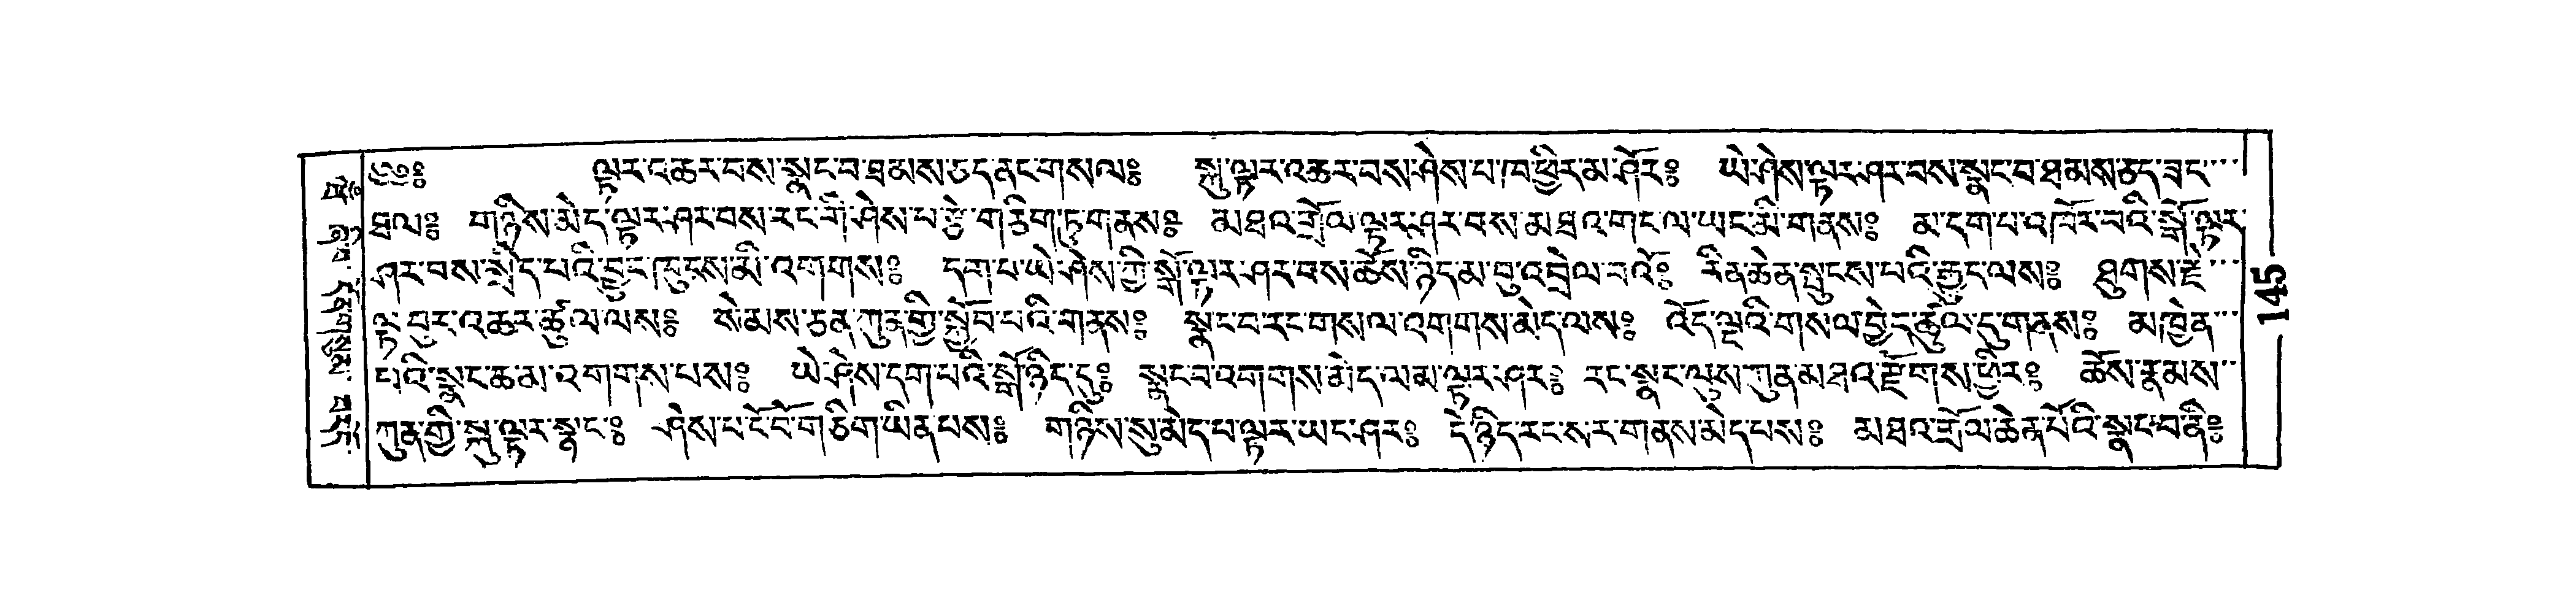 ༄༅༔ ལྟར་འཆར་བས་སྣང་བ་ཐམས་ཅད་ནང་གསལ༔ སྐུ་ལྟར་འཆར་བས་ཤེས་པ་ཁ་ཕྱིར་མ་ཤོར༔ ཡེ་ཤེས་ལྟར་ཤར་བས་སྣང་བ་ཐམས་ཅད་ཟང་
ཐལ༔ གཉིས་མེད་ལྟར་ཤར་བས་རང་གི་ཤེས་པ་རྩེ་གཅིག་ཏུ་གནས༔ མཐའ་གྲོལ་ལྟར་ཤར་བས་མཐའ་གང་ལ་ཡང་མི་གནས༔ མ་དག་པ་འཁོར་བའི་སྒོ་ལྟར་
ཤར་བས་སྲིད་པའི་བྱུང་ཁུངས་མི་འགགས༔ དག་པ་ཡེ་ཤེས་ཀྱི་སྒོ་ལྟར་ཤར་བས་ཆོས་ཉིད་མ་བུ་འབྲེལ་བའོ༔ རིན་ཆེན་སྤུངས་པའི་རྒྱུད་ལས༔ ཐུགས་རྗེ་
ལྟ་བུར་འཆར་ཚུལ་ལས༔ སེམས་ཅན་ཀུན་གྱི་སྐྱོབ་པའི་གནས༔ སྣང་བ་རང་གསལ་འགགས་མེད་ལས༔ འོད་ལྔའི་གསལ་བྱེད་ཚུལ་དུ་གནས༔ མཁྱེན་
པའི་སྣང་ཆ་མ་འགགས་པས༔ ཡེ་ཤེས་དག་པའི་སྒོ་ཉིད་དུ༔ སྣང་བ་འགགས་མེད་ལམ་ལྟར་ཤར༔ རང་སྣང་ལུས་ཀུན་མཐའ་རྫོགས་ཕྱིར༔ ཆོས་རྣམས་
ཀུན་གྱི་སྐུ་ལྟར་སྣང༔ ཤེས་པ་ངོ་བོ་གཅིག་ཡིན་པས༔ གཉིས་སུ་མེད་པ་ལྟར་ཡང་ཤར༔ དེ་ཉིད་རང་ས་ར་གནས་མེད་པས༔ མཐའ་གྲོལ་ཆེན་པོའི་སྣང་བ་ནི༔